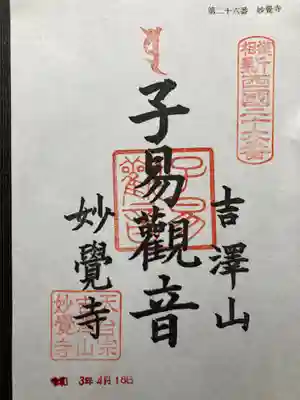 第二十六番　妙覺寺
相模新西國二十六番
子易觀音
吉澤山
妙覺寺
天台宗
妙覺寺
令和 3年 4月 18日